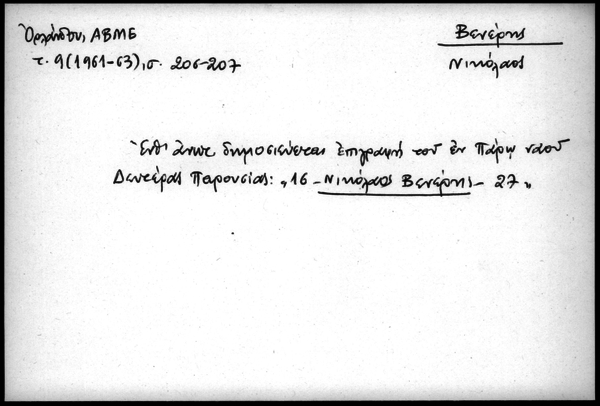 Ὀρλάνδου, ΑΒΜΕ
τ. 9 (1961-63), σ. 206-207
Βενέρης
Νικόλαος
Ἔνθ' ἄνωτ. δημοσιεύεται ἐπιγραφή τοῦ ἐν Πάρῳ ναοῦ
Δευτέρας Παρουσίας: „16 - Νικόλαος Βενέρης - 27„